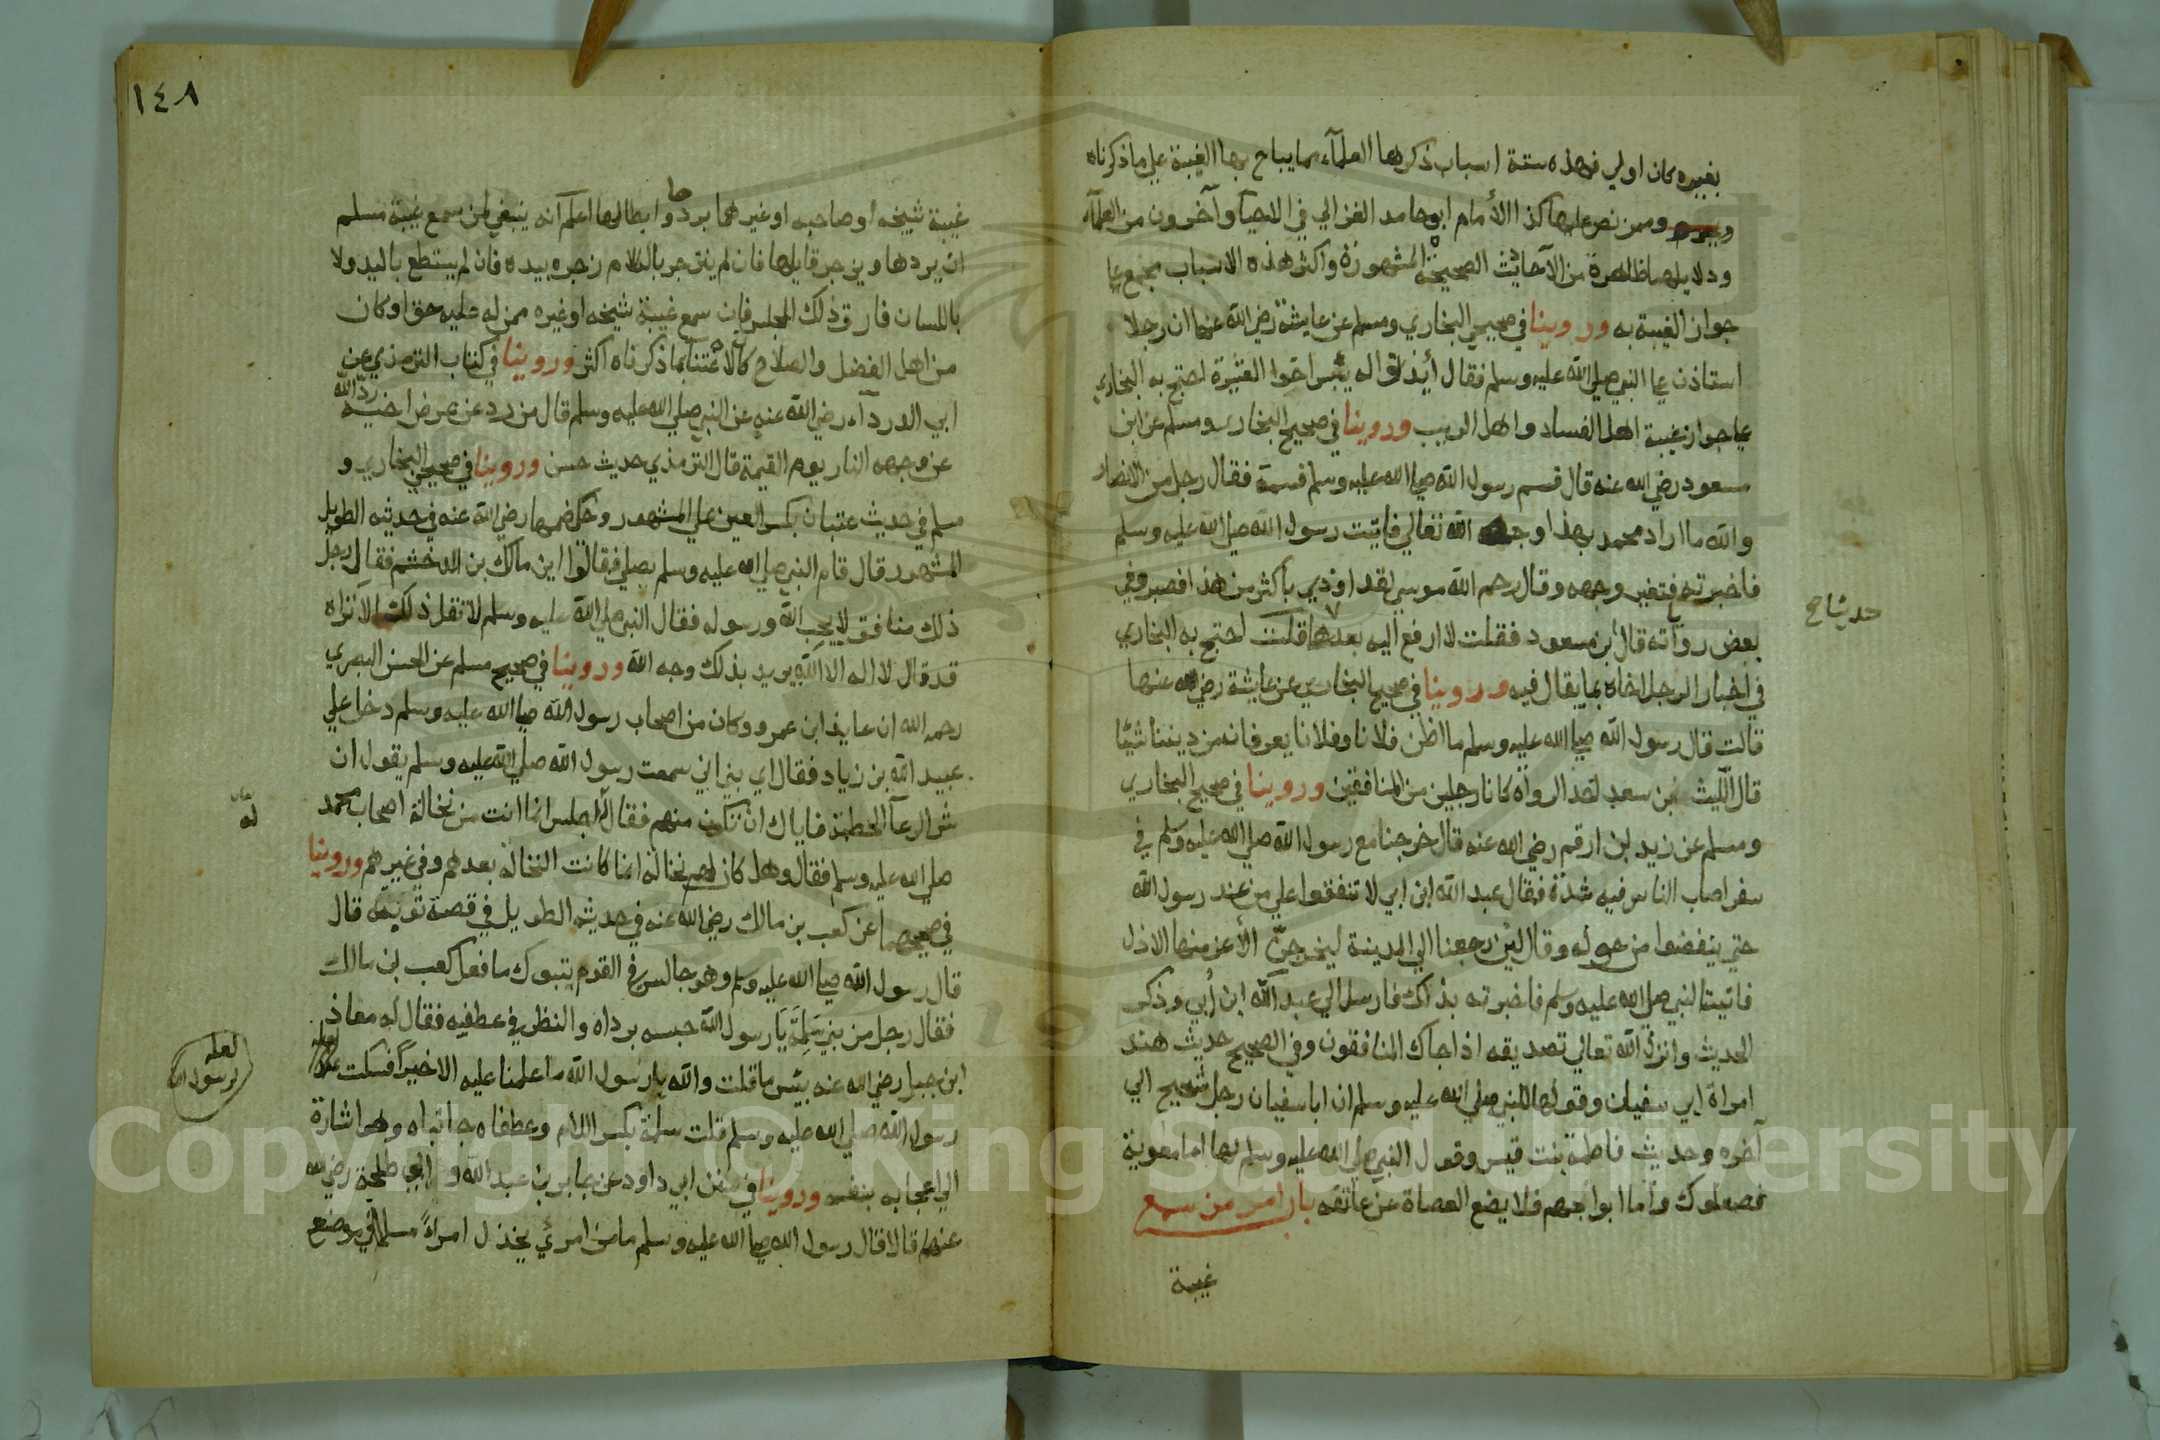 بغيره كان اولي فهذه ستة اسباب ذكرها العلمآء مما يباح بها الغيبة علي ما ذكرناه
وممن نص عليها كذا الأمام ابوحامد الغزالي في الاحيآ وآخرون من العلمآء
ودلايلها ظاهرة من الآحاديث الصحيحة المشهورة واكثر هذه الاسباب مجمع علي
جواز الغيبة به وروينا في صحيحي البخاري ومسلم عن عايشة رضي الله عنها ان رجلا
استاذن علي النبي صلي الله عليه وسلم فقال أيذنوا له بئس اخوا العشيرة احتج به البخاري
علي جواز غيبة اهل الفساد واهل الريب وروينا في صحيح البخاري ومسلم عن ابن
مسعود رضي الله عنه قال قسم رسول الله صلي الله عليه وسلم قسمة فقال رجل من الانصار
والله ما اراد محمد بهذا وجه الله تعالي فاتيت رسول الله صلي الله عليه وسلم
فاخبرته فتغير وجهه وقال رحم الله موسي لقد اوذي بأكثر من هذا فصبر وفي
بعض رواته قال ابن مسعود فقلت لا ارفع اليه بعدها قلت احتج به البخاري
حديثا صح
في اخبار الرجل اخاه بما يقال فيه وروينا في صحيح البخاري عن عايشة رضي الله عنها
قالت قال رسول الله صلي الله عليه وسلم ما اظن فلانا وفلانا يعرفانه من ديننا شيئا
قال الليث بن سعد احد الرواه كانا رجلين من المنافقين وروينا في صحيح البخاري
ومسلم عن زيد بن ارقم رضي الله عنه قال خرجنا مع رسول الله صلي الله عليه وسلم في
سفر اصاب الناس فيه شدة فقال عبد الله ابن ابي لا تنفقوا علي من عند رسول الله
حتي ينفضوا من حوله وقال ليئن رجعنا الي المدينة ليخرجن الأعز منها الاذل
فاتيت النبي صلي الله عليه وسلم فاخبرته بذلك فارسل الي عبد الله ابن أبي وذكر
الحديث وانزل الله تعالي تصديقه اذا جاك المنافقون وفي الصحيح حديث هند
امراة ابي سفيان وقولها للنبي صلي الله عليه وسلم ان ابا سفيان رجل شحيح الي
آخره وحديث فاطمة بنت قيس وقول النبي صلي الله عليه وسلم لها اما معوية
فصعلوك وأما ابواجهم فلا يضع العصاة عن عاتقه باب امر من سمع
غيبة
١٤٨
غيبة شيخه او صاحبه او غيرهما بردها وابطالها اعلم انه ينبغي لمن سمع غيبة مسلم
ان يردها ويزجر قايلها فان لم ينزجر بالكلام زجره بيده فان لم يستطع باليد ولا
باللسان فارق ذلك المجلس فإن سمع غيبة شيخه او غيره ممن له عليه حق او كان
من اهل الفضل والصلاح كان الاعتنآ بما ذكرناه اكثر وروينا في كتاب الترمذي عن
ابي الدردآء رضي الله عنه عن النبي صلي الله عليه وسلم قال من رد عن عرض اخيه رد الله
عن وجهه النار يوم القيمة قال الترمذي حديث حسن وروينا في صحيحي البخاري و
مسلم في حديث عتبان بكسر العين علي المشهور وحكي ضمها رضي الله عنه في حديثه الطويل
المشهور قال قام النبي صلي الله عليه وسلم يصلي فقالوا اين مالك بن الدخشم فقال رجل
ذلك منافق لا يحب الله ورسوله فقال النبي صلي الله عليه وسلم لا تقل ذلك الا تراه
قد قال لا اله الا الله يريد بذلك وجه الله وروينا في صحيح مسلم عن الحسن البصري
رحمه الله ان عايذ ابن عمرو وكان من اصحاب رسول الله صلي الله عليه وسلم دخل علي
عبيد الله بن زياد فقال اي بني اني سمعت رسول الله صلي الله عليه وسلم يقول ان
شر الرعآ الحطمة فاياك ان تكون منهم فقال له اجلس انما انت من نخالة اصحاب محمد
صلي الله عليه وسلم فقال وهل كان لهم نخالة انما كانت النخالة بعدهم وفي غيرهم وروينا
في صحيحهما عن كعب بن مالك رضي الله عنه في حديثه الطويل في قصة توبته قال
قال رسول الله صلي الله عليه وسلم وهو جالس في القدم بتبوك ما فعل كعب ابن مالك
فقال رجل من بني سلمة يا رسول الله حبسه برداه والنظر في عطفيه فقال له معاذ
ابن جبل رضي الله عنه بيئس ما قلت والله يا رسول الله ما علمنا عليه الا خيرا فسكت
لعله
رسول الله صلي الله عليه وسلم قلت سلمة بكسر اللام وعطفاه جانباه وهو اشارة
الي اعجابه بنفسه وروينا في سنن ابي داود عن جابر بن عبد الله و ابي طلحة رضي الله
عنهم قالا قال رسول الله صلي الله عليه وسلم ما من امرئ يخذل امراءً مسلما في موضع
Copyright © King Saud University